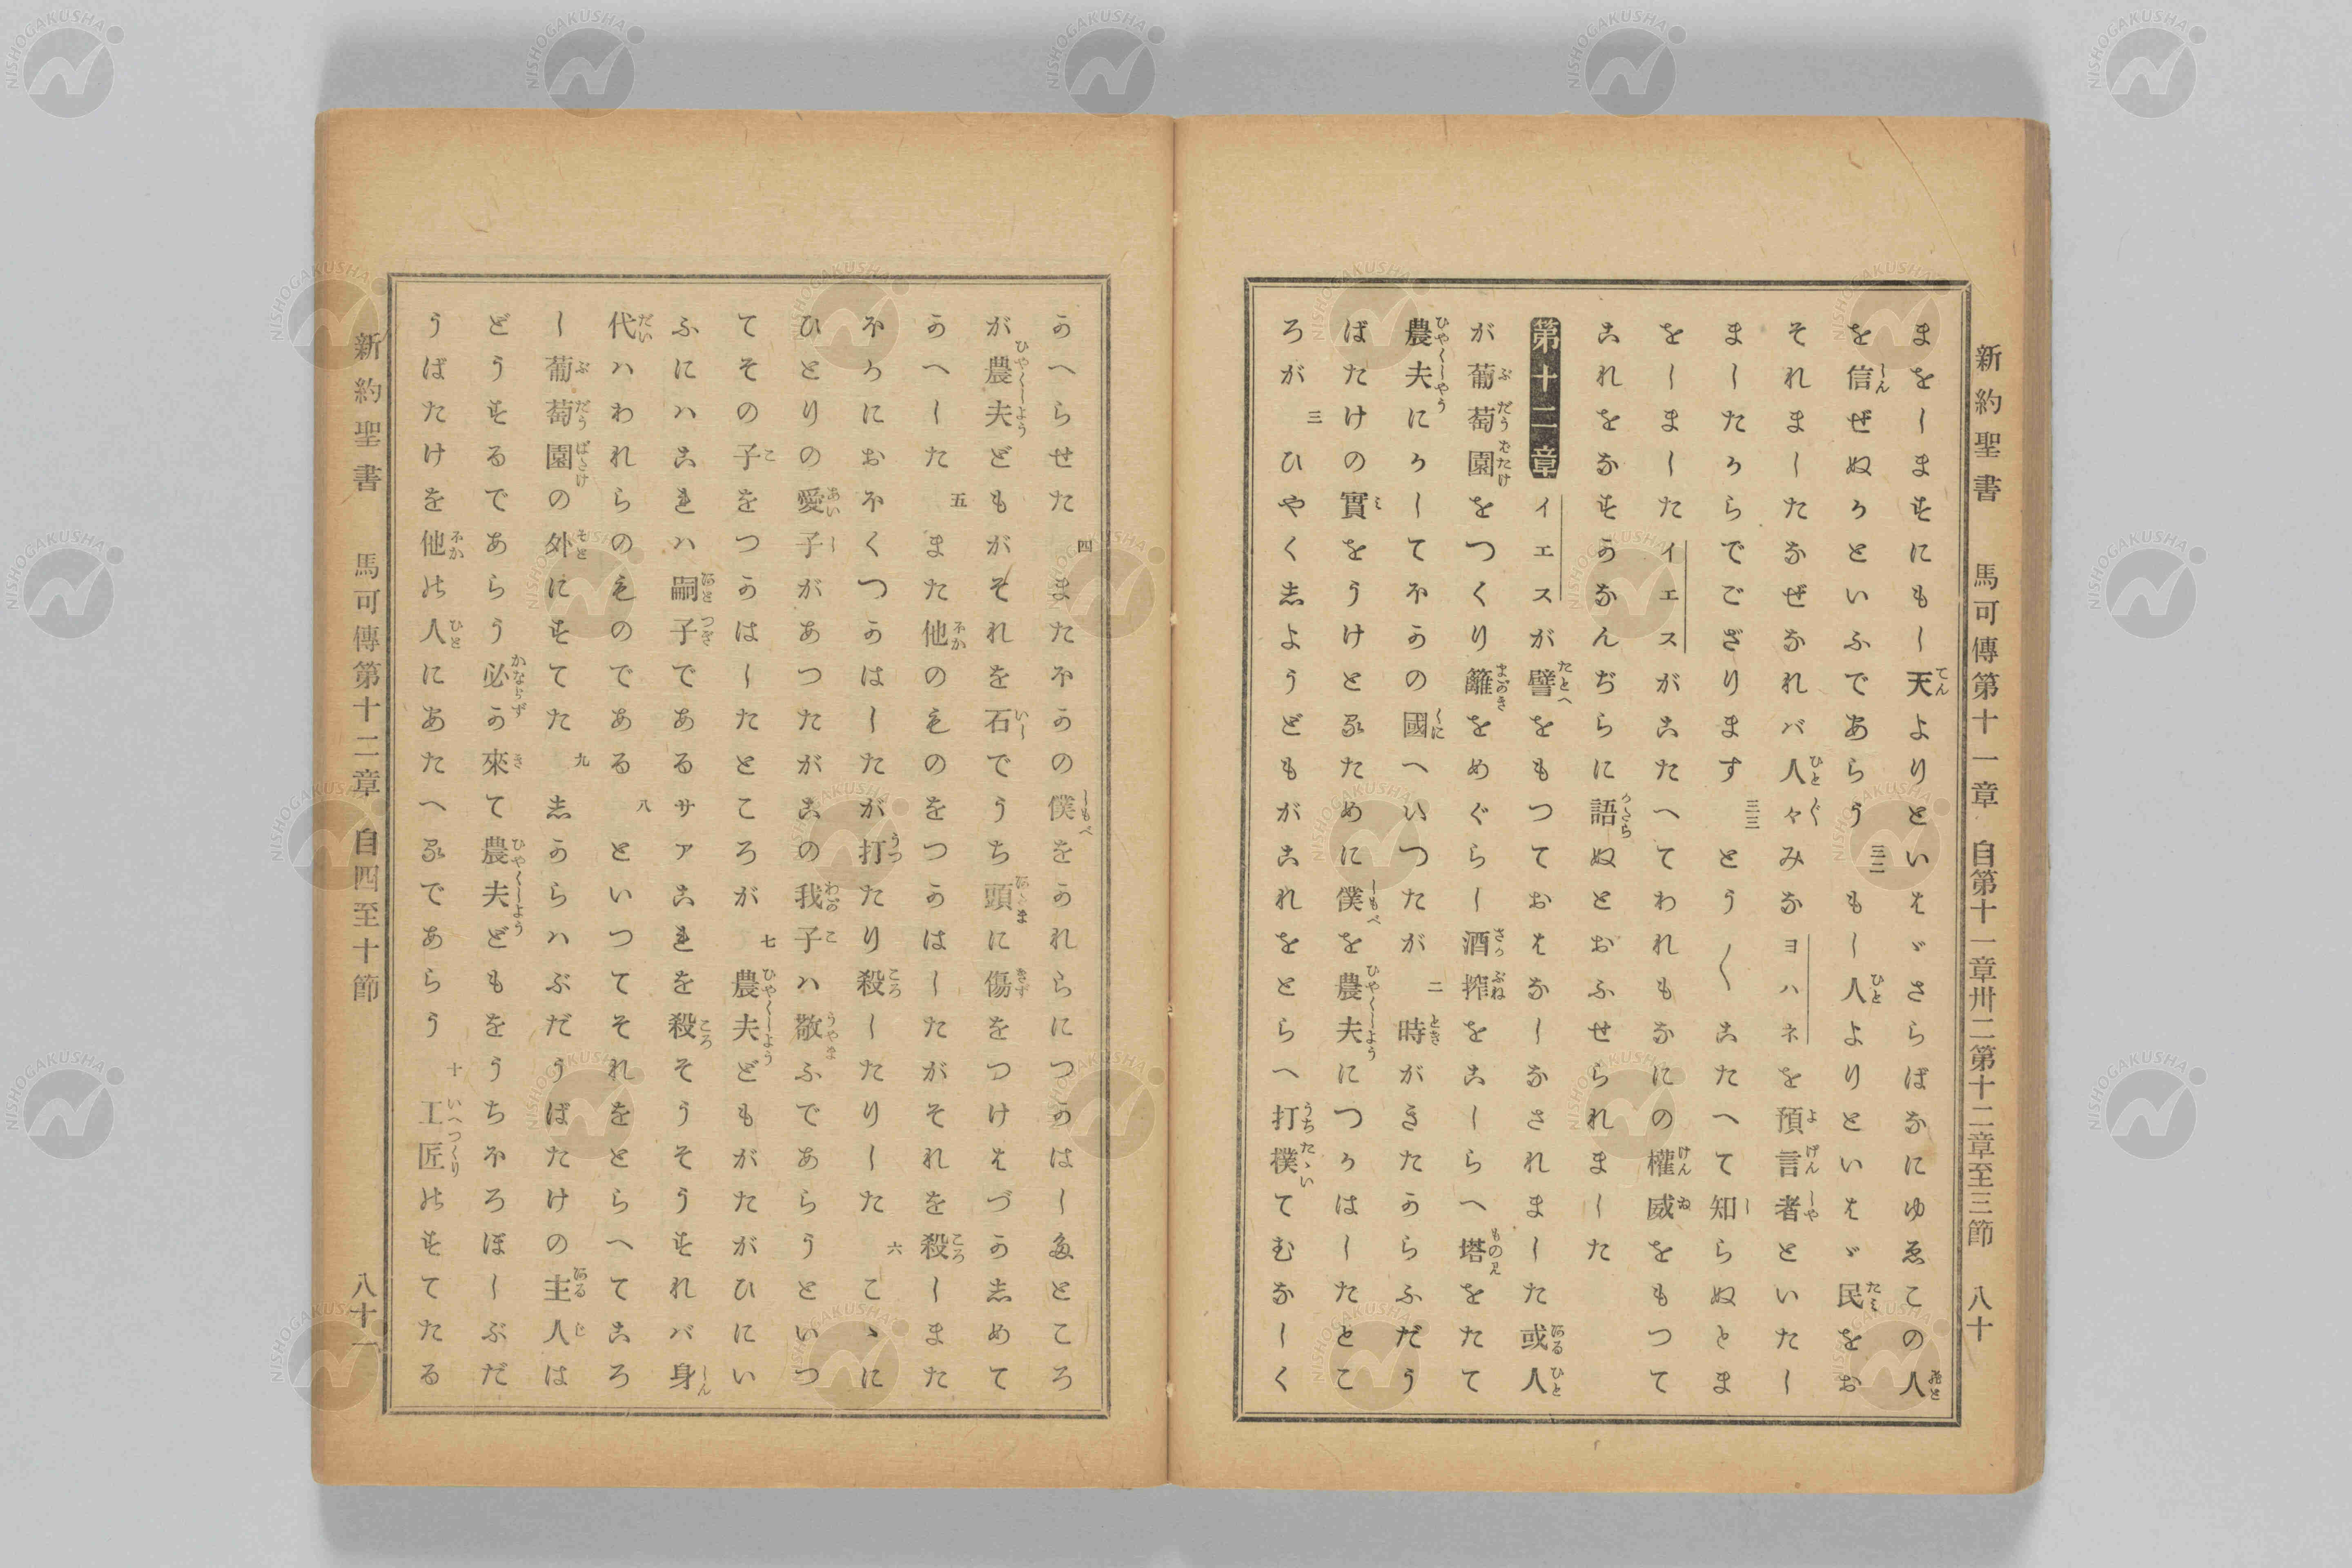 新約聖書　馬可傳第十一章　自第十一章卅二第十二章至三節　八十
まをしますにもし天よりといはゞさらばなにゆゑこの人
を信ぜぬかといふであらう　三二　もし人よりといはゞ民をお
それましたなぜなれバ人々みなヨハネを預言者といたし
ましたからでござります　三三　とう〱こたへて知らぬとま
をしましたイエスがこたへてわれもなにの權威をもつて
これをなすかなんぢらに語らぬとおふせられました
第十二章　イエスが譬をもつておはなしなされました或人
が葡萄園をつくり籬をめぐらし酒搾をこしらへ塔をたて
農夫にかしてほかの國へいつたが　二　時がきたからふだう
ばたけの實をうけとるために僕を農夫につかはしたとこ
ろが　三　ひやくしようどもがこれをとらへ打撲てむなしく
かへらせた　四　またほかの僕をかれらにつかはしたところ
が農夫どもがそれを石でうち頭に傷をつけはづかしめて
かへした　五　また他のものをつかはしたがそれを殺しまた
ほかにおほくつかはしたが打たり殺したりした　六　こゝに
ひとりの愛子があつたがこの我子ハ敬ふであらうといつ
てその子をつかはしたところが　七　農夫どもがたがひにい
ふにハこれハ嗣子であるサアこれを殺そうそうすれバ身
代ハわれらのものである　八　といつてそれをとらへてころ
し葡萄園の外にすてた　九　しからハぶだうばたけの主人は
どうするであらう必か來て農夫どもをうちほろぼしぶだ
うばたけを他の人にあたへるであらう　十　工匠のすてたる
新約聖書　馬可傳第十二章　自四至十節　八十一